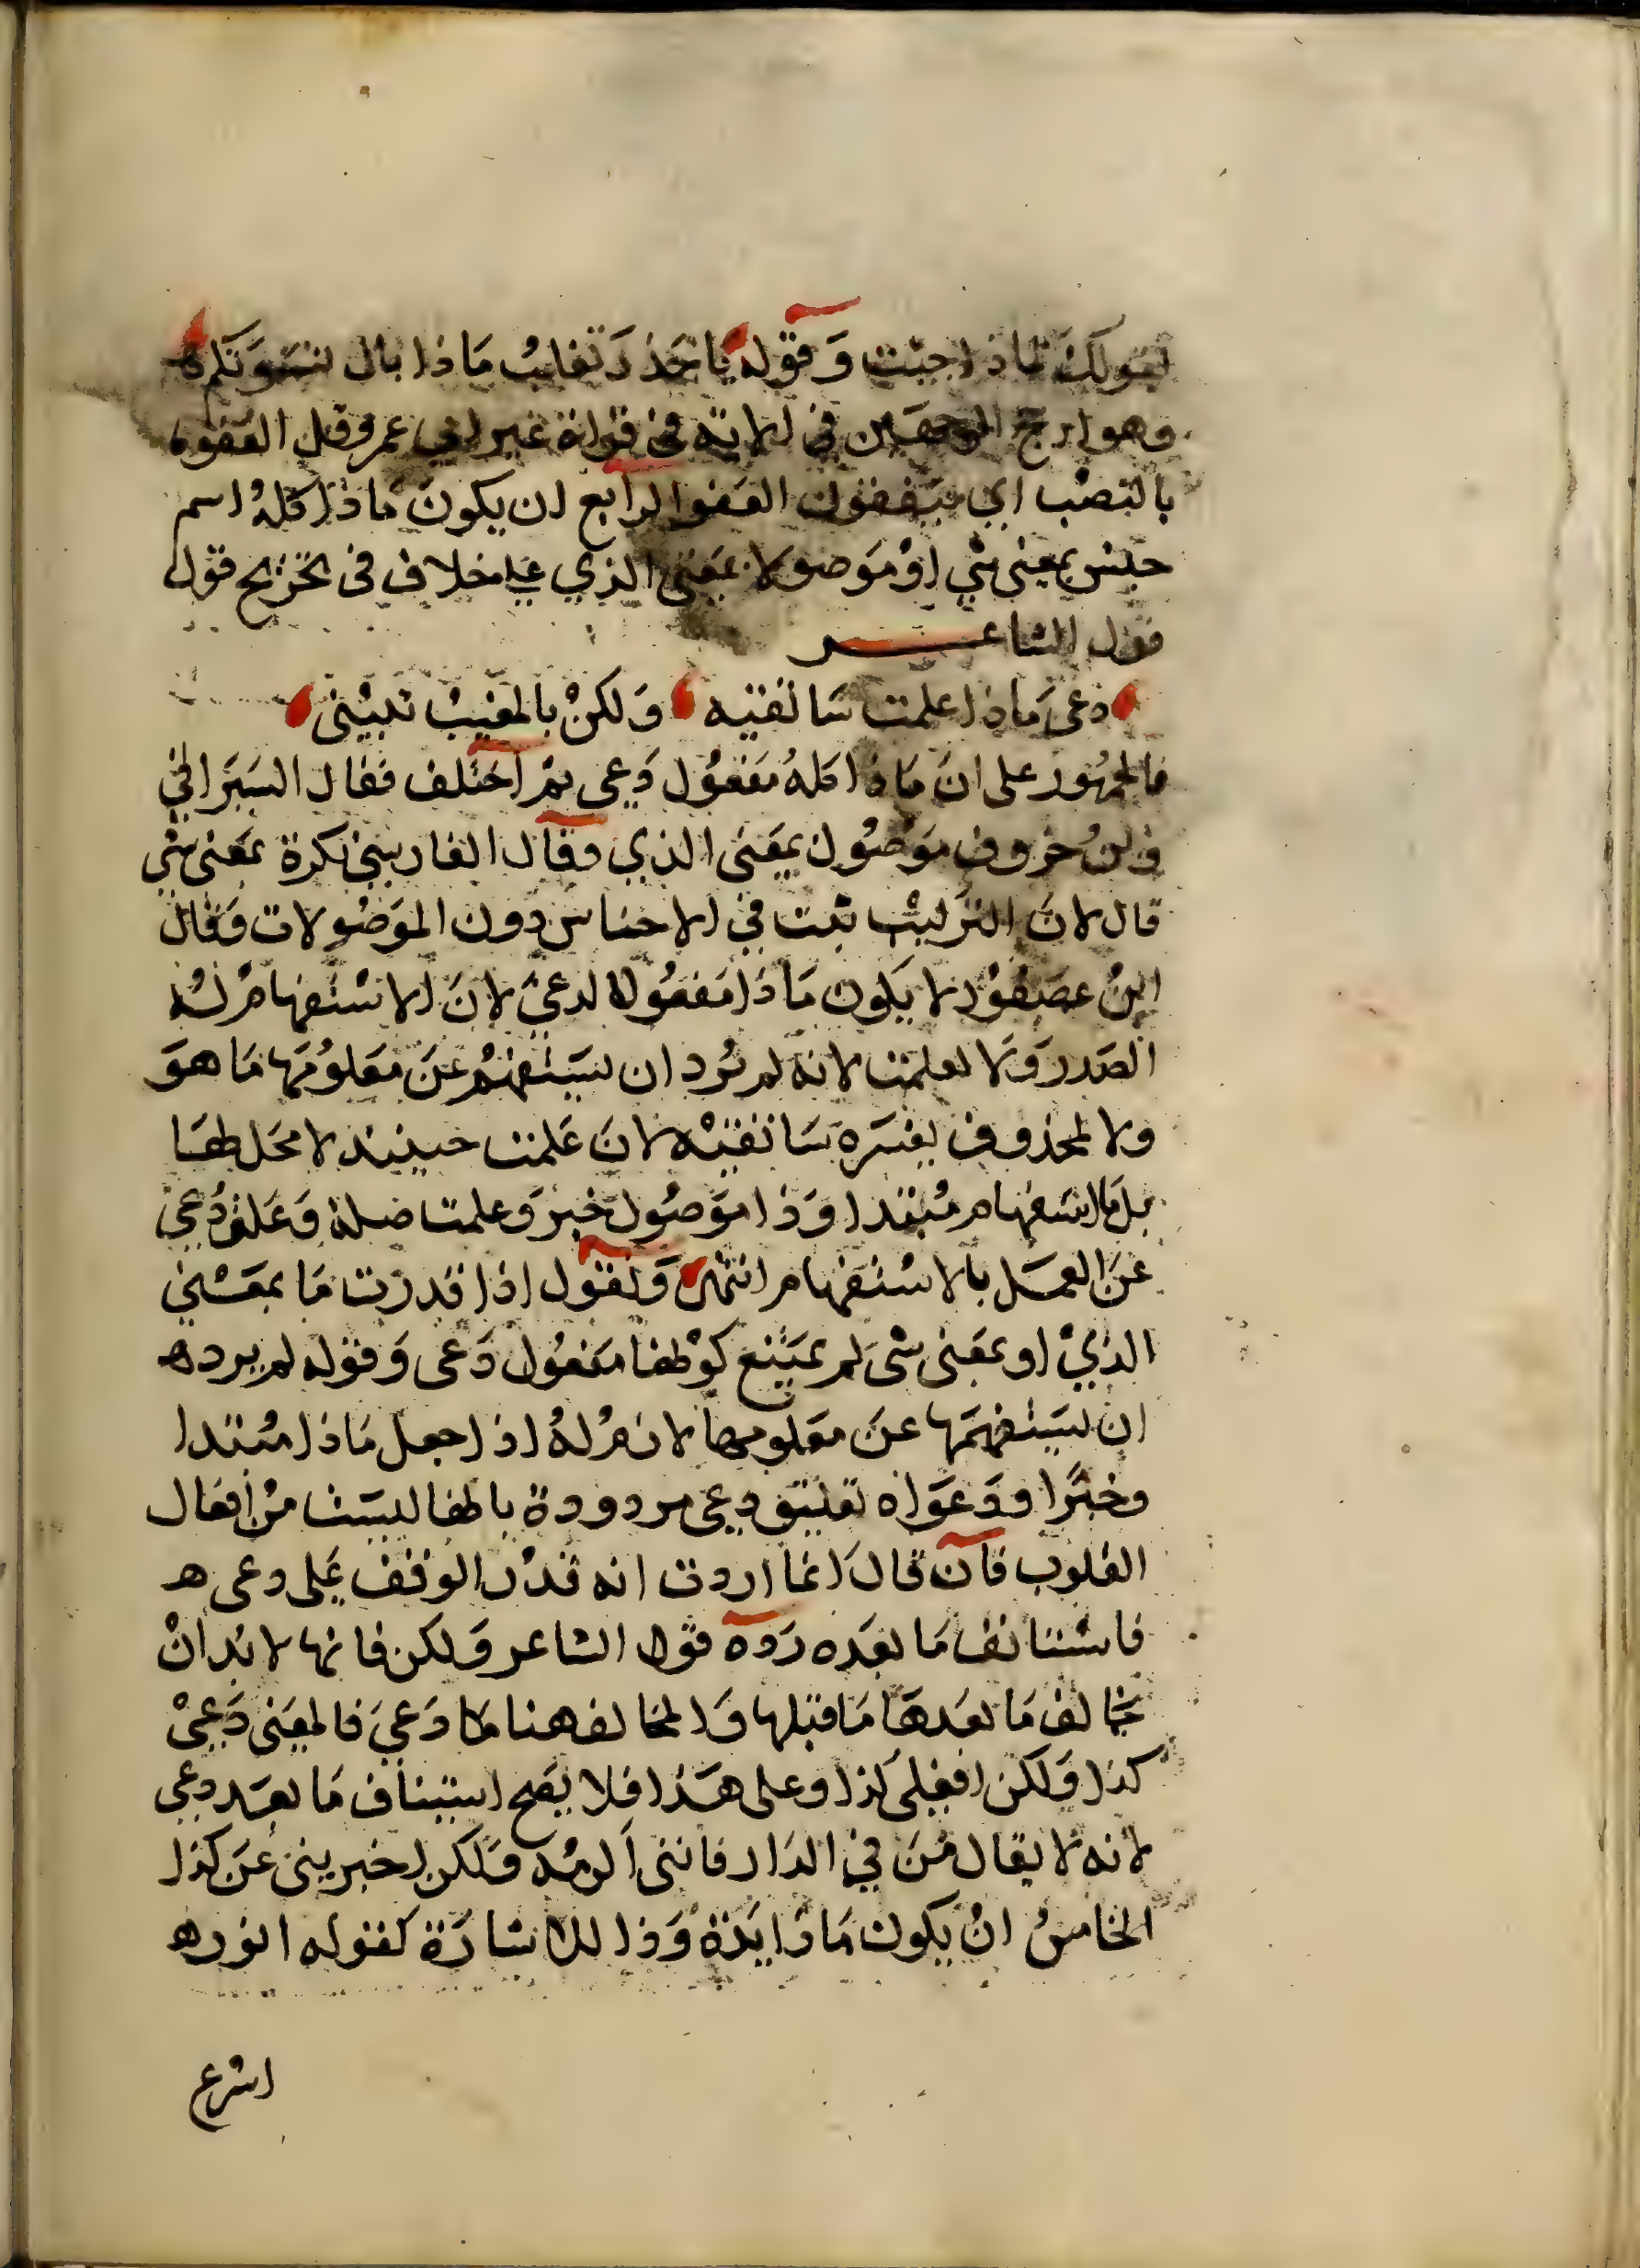 لقولك لماذا جئت وقوله يا خزر تغلب ماذا بال نسوتكم
وهو ارجح الوجهين في الاية في قراة غير ابي عمرو قل العفو
بالنصب اي ينفقون العفو الرابع ان يكون ماذا كله اسم
جنس بمعنى شي او موصولا بمعنى الذي على خلاف في تخريج قول
قول الشاعر
دعى ماذا علمت سأتقيه ولكن بالمغيب نبيني
فالجمهور على ان ماذا كله مفعول دعي ثم اختلف فقال السيرافي
وابن خروف موصول بمعنى الذي وقال الفارسي نكرة بمعنى شي
قال لان التركيب ثبت في الاجناس دون الموصولات وقال
ابن عصفور لا يكون ماذا مفعولا لدعي لان الاستفهام له
الصدر ولا لعلمت لانه لم يرد ان يستفهم عن معلومها ما هو
ولا لمحذوف يفسره سأتقيه لان علمت حينيذ لا محل لها
بل ما استفهام مبتدا وذا موصول خبر وعلمت صلة وعلق دعي
عن العمل بالاستفهام انتهى ونقول اذا قدرت ما بمعنى
الذي او بمعنى شي لم يمتنع كونها مفعول دعي وقوله لم يرد ه
ان يستفهمها عن معلومها لازم له اذا جعل ماذا مبتدا
وخبرا ودعواه تعليق دعي مردودة بانها ليست من افعال
القلوب فان قال انما اردت انه قدر الوقف على دعي ه
فاستانف ما بعده رده قول الشاعر ولكن فانها لا بد ان
يخالف ما بعدها ما قبلها والمخالف هنا ما دعي فالمعنى دعي
كذا ولكن افعلي كذا وعلى هذا فلا يصح استيناف ما بعد دعي
لانه لا يقال من في الدار فانني اكرمه ولكن اخبريني عن كذا
الخامس ان يكون ما زايدة وذا للاشارة كقوله انورا ه
اسرع